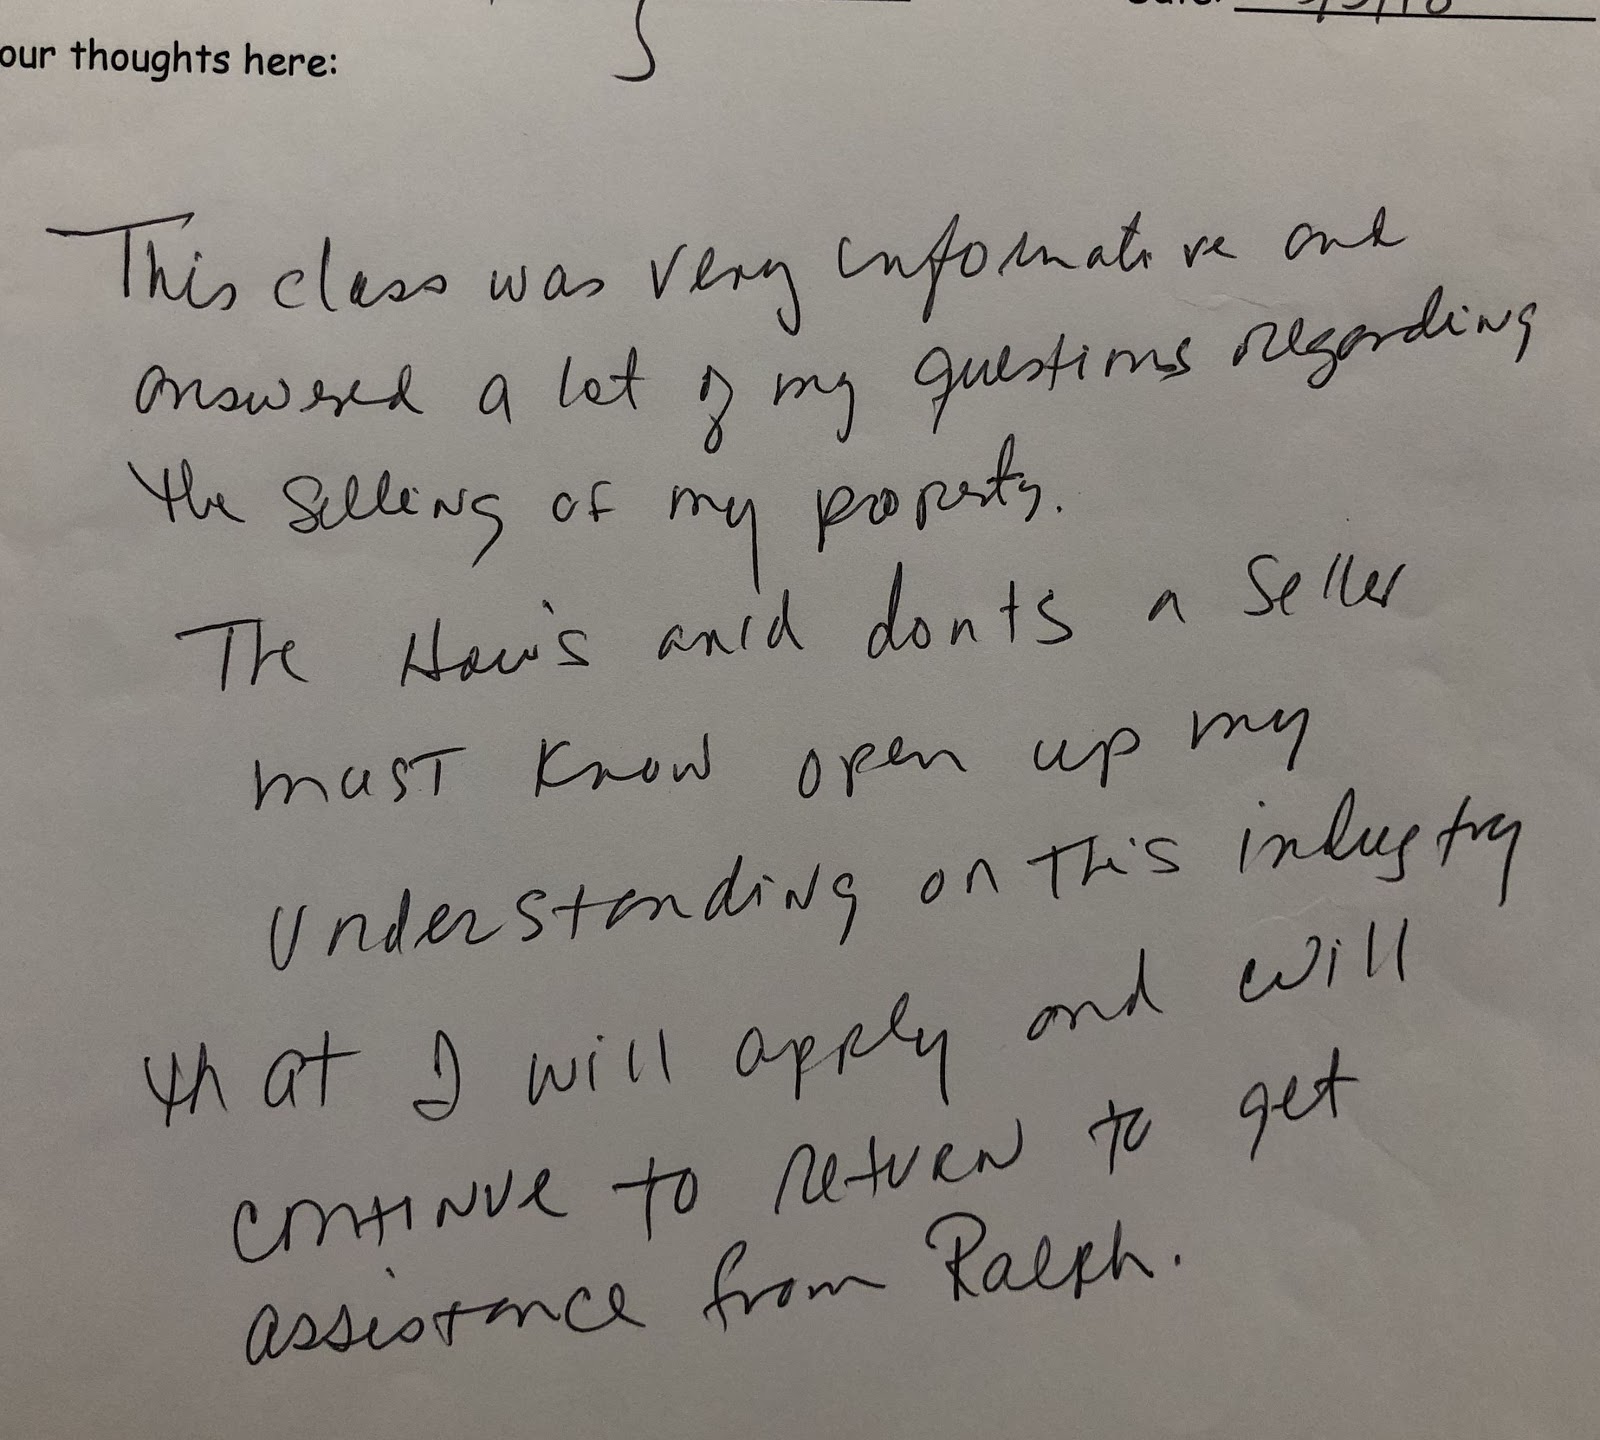 our thoughts here:
This class was very informative and
answered a lot of my questions regarding
the selling of my property.
The How's and donts a seller
must know open up my
understanding on this industry
that I will apply and will
continue to return to get
assistance from Ralph.